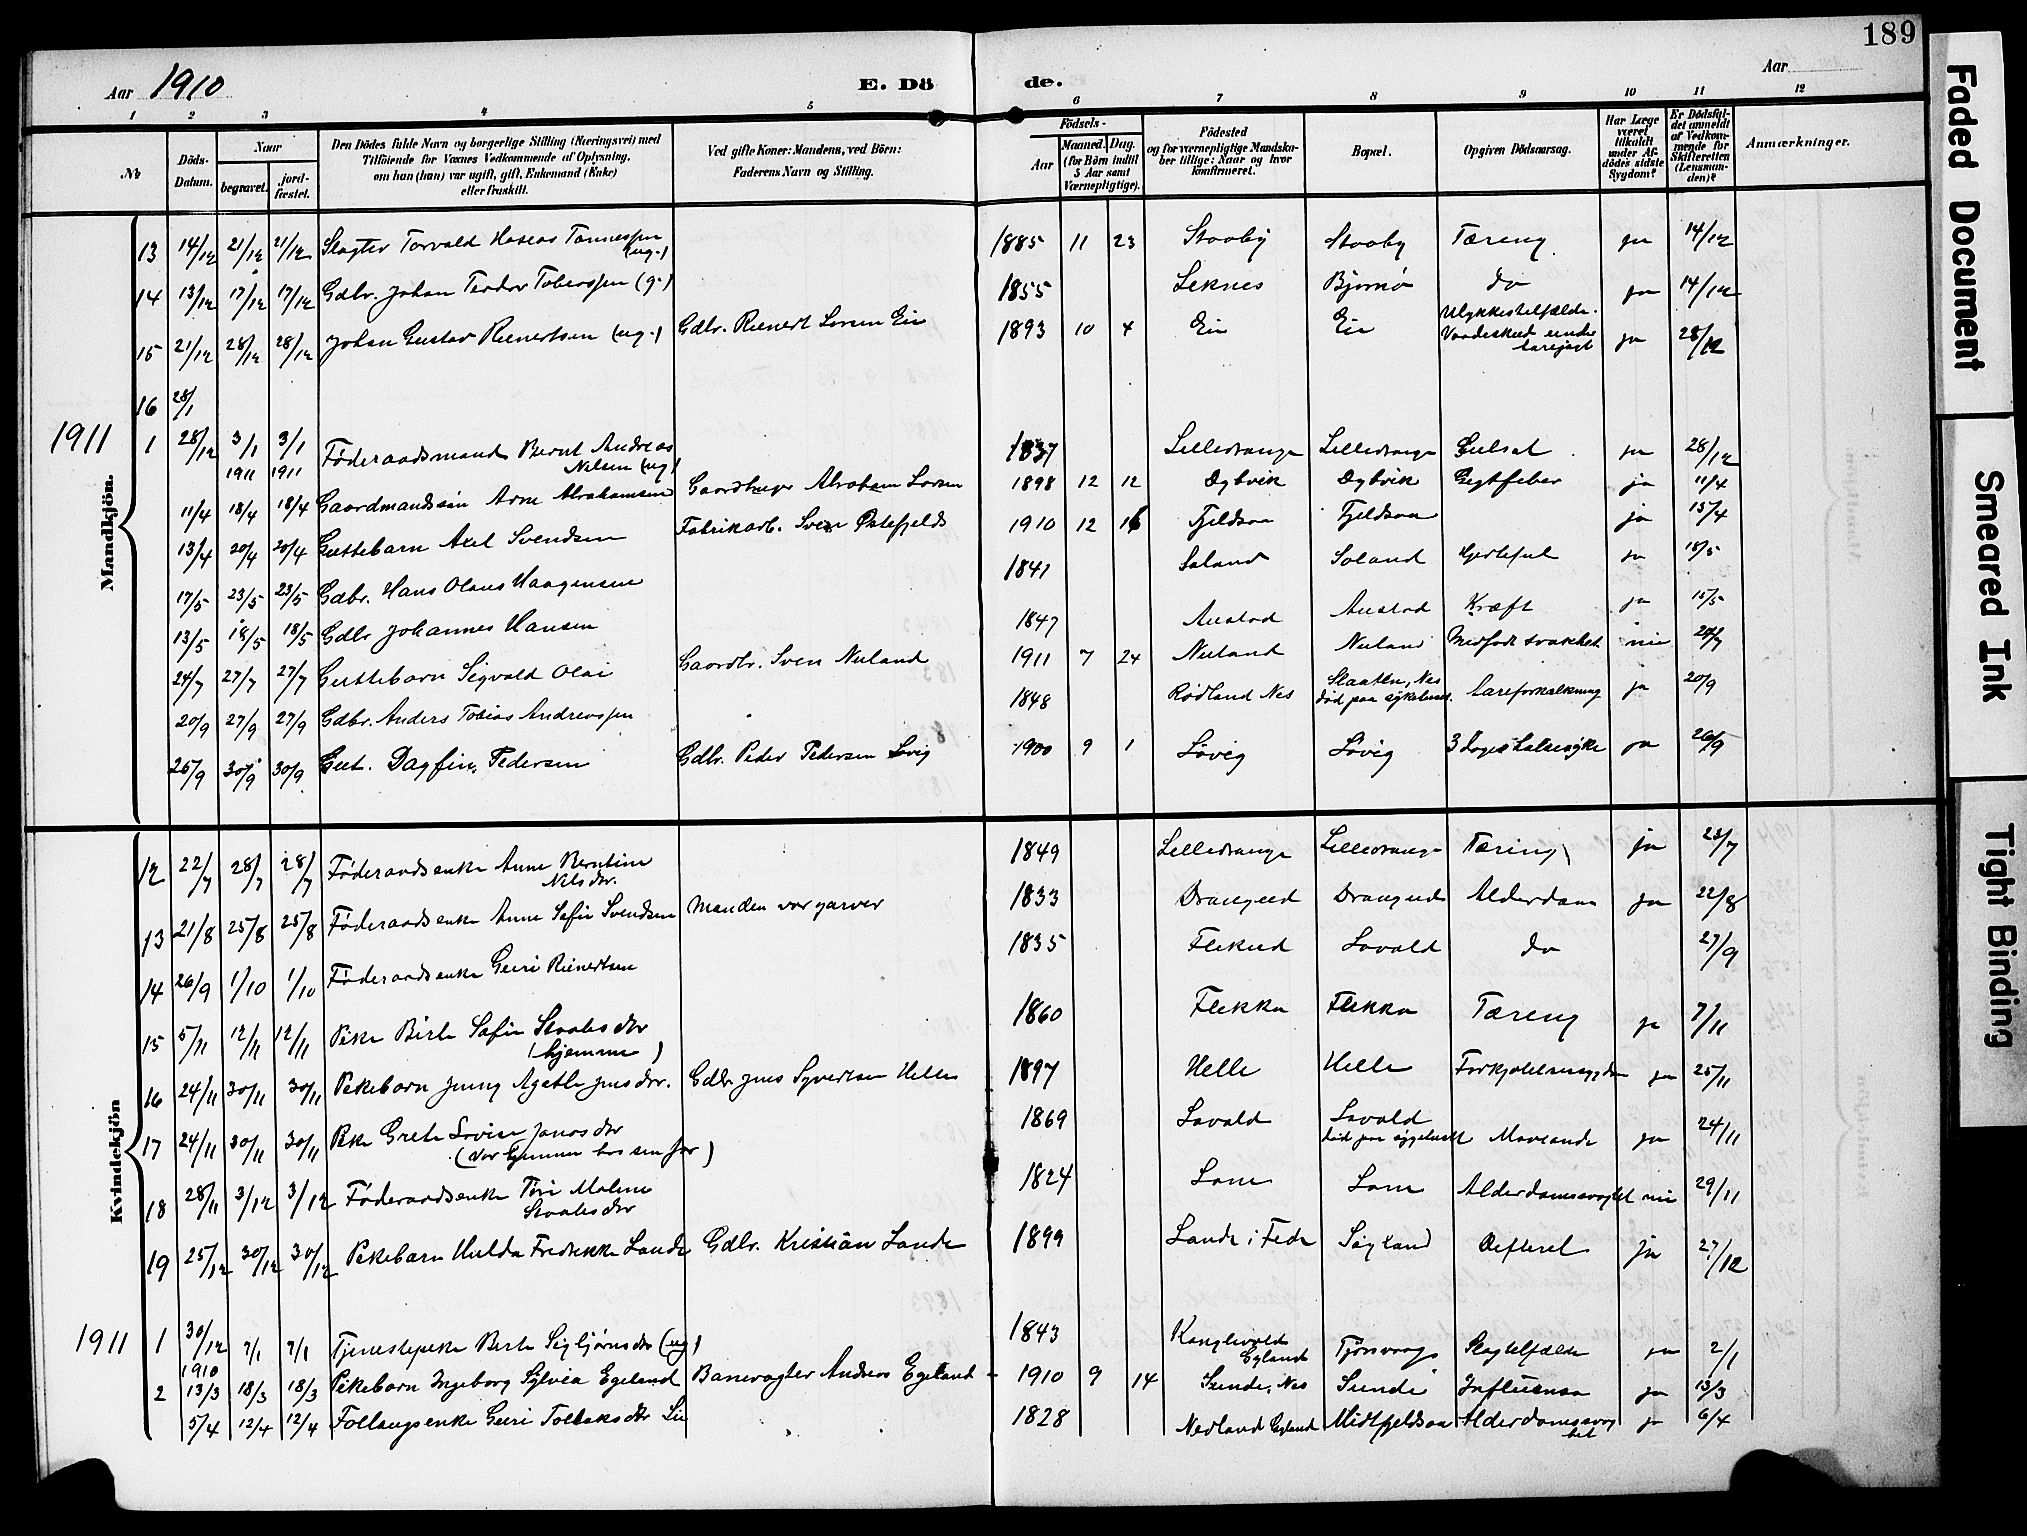 189
Aar 1910
E. Dö
de.
Aar
1 2 3 4 5 6 7 8 9 10 11 12
№
Döds-
Datum.
Naar
begravet.
jord-
fæstet.
Den Dödes fulde Navn og borgerlige Stilling (Næringsvei) med
Tilföiende for Voxnes Vedkommende af Oplysning,
om han (hun) var ugift, gift, Enkemand (Enke)
eller fraskilt.
Ved gifte Koner: Mandens, ved Börn:
Faderens Navn og Stilling.
Födsels-
Aar
Maaned.
Dag.
(for Börn indtil
5 Aar samt
Værnepligtige).
Födested
og for værnepligtige Mandska-
ber tillige: Naar og hvor
konfirmeret.
Bopæl.
Opgiven Dödsaarsag.
Har Læge
været
tilkaldt
under Af-
dödes sidste
Sygdom?
Er Dödsfal-
det anmeldt
af Vedkom-
mende for
Skifteretten
(Lensman-
den)?
Anmærkninger.
Mandkjön.
13 14/12 21/12 21/12 Slagter Torvald Hoseas Tønnessen (ug.) 1885 11 23 Stooby Stooby Tæring ja 14/12
14 13/12 17/12 17/12 Gdbr. Johan Teodor Tobiassen (g.) 1855 Leknes Bjørnø do ja 14/12
15 21/12 28/12 28/12 Johan Gustav Reinertsen (ug.) Gdbr. Reinert Larsen Eie 1893 10 4 Eie Eie Ulykkestilfælde. Vaadeskud under harejagt ja 28/12
16 28/1
1911 1 28/12 3/1 1911 3/1 1911 Føderaadsmand Bernt Andreas Nilsen (ug) 1837 Lilledrange Lilledrange Gulsot ja 28/12
11/4 18/4 18/4 Gaardmandssøn Arne Abrahamsen Gaardbruger Abraham Larsen 1898 12 12 Dybvik Dybvik Gigtfeber ja 11/4
13/4 20/4 20/4 Guttebarn Axel Svendsen Fabrikarb. Sven Østefjelds 1910 12 16 Fjeldsaa Fjeldsaa ja 15/4
17/5 23/5 23/5 Gdbr. Hans Olaus Haagensen 1841 Soland Soland Hjertefeil ja 18/5
13/5 18/5 18/5 Gdbr Johannes Hansen 1847 Austad Austad Kræft ja 15/5
24/7 27/7 27/7 Guttebarn Sigvald Olai Gaardbr. Sven Nuland 1911 7 24 Nuland Nuland Medfødt svakhet nei 24/7
20/9 27/9 27/9 Gdbr. Anders Tobias Andreassen 1848 Rødland Nes Slaatten, Nes død paa sykehuset. Aareforkalkning ja 20/9
25/9 30/9 30/9 Gut. Dagfin Pedersen Gdbr. Peder Pedersen Løvig 1900 9 1 Løvig Løvig 3 Dages Halsesyke ja 26/9
Kvindekjön
12 22/7 28/7 28/7 Føderaadsenke Anne Berntine Nilsdtr. 1849 Lilledrange Lilledrange Tæring ja 23/7
13 21/8 25/8 25/8 Føderaadsenke Anne Sofie Svendsen Manden var garver 1833 Drangeid Drangeid Alderdom ja 22/8
14 26/9 1/10 1/10 Føderaadsenke Guri Reinertsen 1835 Flikeid Lavold do 27/9
15 5/11 12/11 12/11 Pike Birte Sofie Staalesdtr (hjemme) 1860 Flikka Flikka Tæring ja 7/11
16 24/11 30/11 30/11 Pikebarn Jenny Agethe Jensdtr. Gdbr Jens Syvertsen Helle 1897 Helle Helle Forkjølelsessygdom ja 25/11
17 24/11 30/11 30/11 Pike Grete Lovise Jonasdtr (var hjemme hos sin far) 1869 Lavold Lavold død paa sygehuset Mavesaar ja 24/11
18 28/11 3/12 3/12 Føderaadsenke Tøri Malene Staalesdtr 1824 Lom Lom Alderdomssvaghet nei 29/11
19 25/12 30/12 30/12 Pikebarn Hulda Fredrikke Lande Gdbr. Kristian Lande 1899 Lande i Fede Sigland Difterit ja 27/12
1911 1 30/12 1910 7/1 7/1 Tjenestepike Berte Sigbjørnsdtr (ug) 1843 Kongevold Egland Tjørsvaag Slagtilfælde ja 2/1
2 13/3 18/3 18/3 Pikebarn Ingeborg Sylvia Egeland Banevogter Andreas Egeland 1910 9 14 Sunde, Nes Sunde Influensa ja 13/3
5/4 12/4 12/4 Follaugsenke Guri Tollaksdtr Lie 1828 Nedland Egland Midtfjeldsaa Alderdomssvaghet ja 6/4
Faded Document
Smeared Ink
Tight Binding